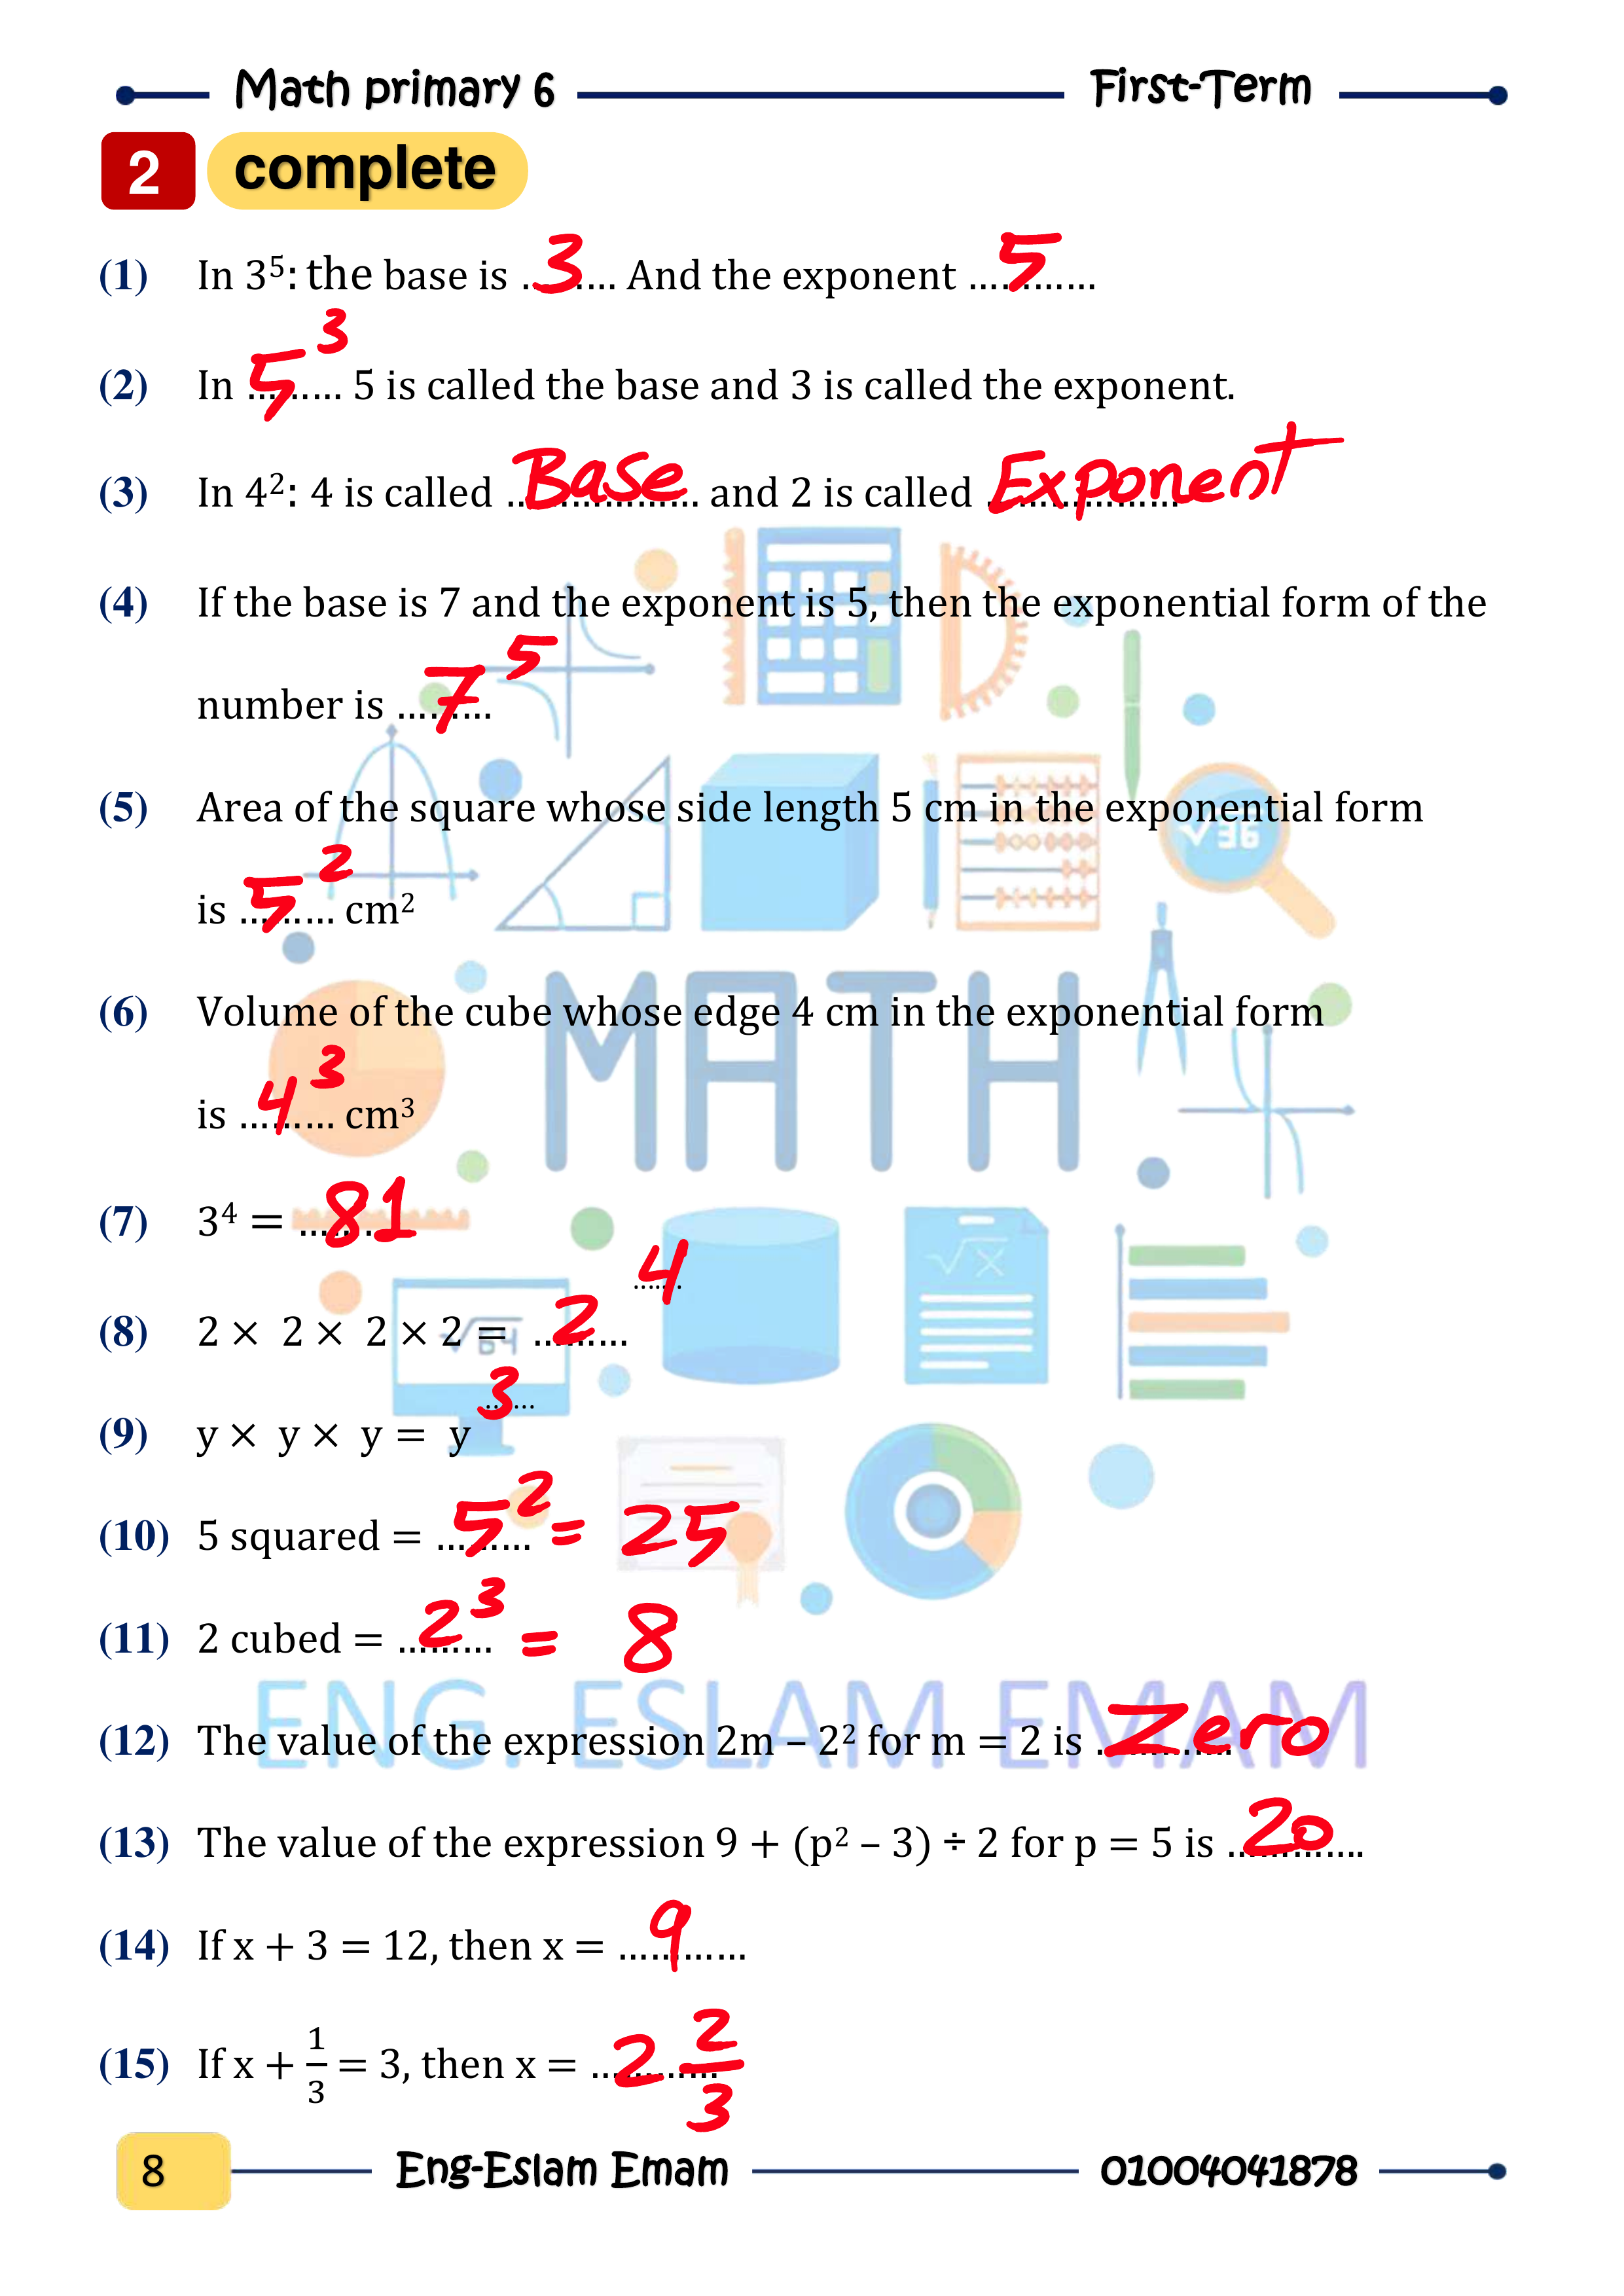 Math primary 6 First-Term
2 complete
(1) In 3⁵: the base is ...3... And the exponent ...5...
(2) In ...5³... 5 is called the base and 3 is called the exponent.
(3) In 4²: 4 is called ...Base... and 2 is called ...Exponent...
(4) If the base is 7 and the exponent is 5, then the exponential form of the
number is ...7⁵...
(5) Area of the square whose side length 5 cm in the exponential form
is ...5²... cm²
(6) Volume of the cube whose edge 4 cm in the exponential form
is ...4³... cm³
(7) 3⁴ = ...81...
(8) 2 × 2 × 2 × 2 = ...2⁴...
(9) y × y × y = y³
(10) 5 squared = ...5²... = 25
(11) 2 cubed = ...2³... = 8
(12) The value of the expression 2m – 2² for m = 2 is ...Zero...
(13) The value of the expression 9 + (p² – 3) ÷ 2 for p = 5 is ...20...
(14) If x + 3 = 12, then x = ...9...
(15) If x + 1/3 = 3, then x = ...2 2/3...
√36
MATH
√x
√64
ENG. ESLAM EMAM
8 Eng-Eslam Emam 01004041878